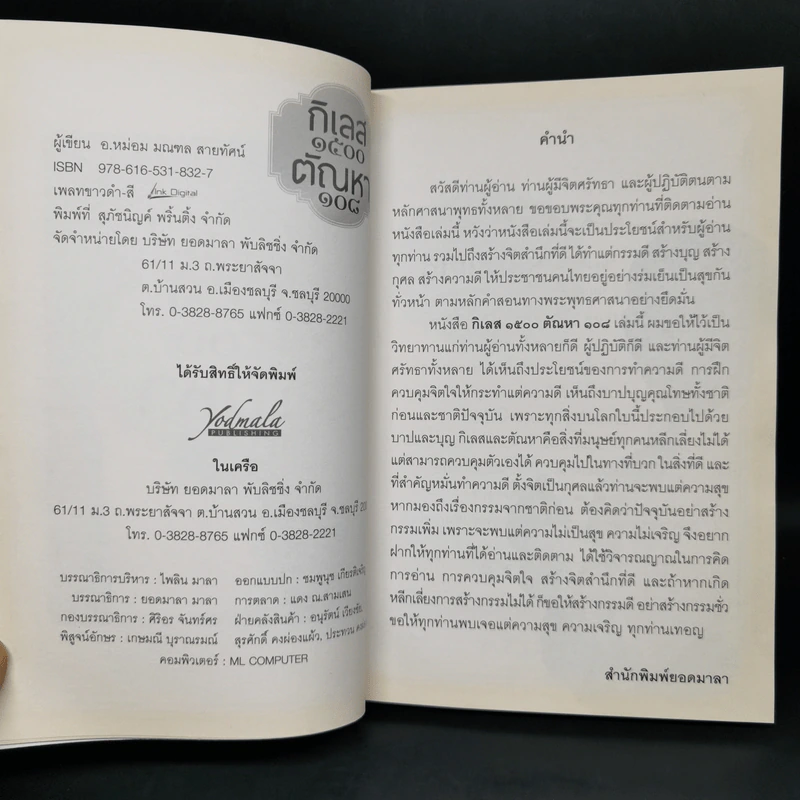 กิเลส
๑๕๐๐
ตัณหา
๑๐๘
ผู้เขียน อ.หม่อม มณฑล สายทัศน์
ISBN 978-616-531-832-7
เพลทขาวดำ-สี Ink Digital
พิมพ์ที่ สุภัชนิญค์ พริ้นติ้ง จำกัด
จัดจำหน่ายโดย บริษัท ยอดมาลา พับลิชชิ่ง จำกัด
61/11 ม.3 ถ.พระยาสัจจา
ต.บ้านสวน อ.เมืองชลบุรี จ.ชลบุรี 20000
โทร. 0-3828-8765 แฟกซ์ 0-3828-2221
ได้รับสิทธิ์ให้จัดพิมพ์
Yodmala
PUBLISHING
ในเครือ
บริษัท ยอดมาลา พับลิชชิ่ง จำกัด
61/11 ม.3 ถ.พระยาสัจจา ต.บ้านสวน อ.เมืองชลบุรี จ.ชลบุรี
โทร. 0-3828-8765 แฟกซ์ 0-3828-2221
บรรณาธิการบริหาร : ไพลิน มาลา ออกแบบปก : ชมพูนุช
บรรณาธิการ : ยอดมาลา มาลา การตลาด : แดง ณ.สามเสน
กองบรรณาธิการ : ศิริอร จันทร์ศร ฝ่ายคลังสินค้า : อนุรัตน์
พิสูจน์อักษร : เกษมณี บุราณรมณ์ สุรศักดิ์ คงผ่องแผ้ว, ประทวน
คอมพิวเตอร์ : ML COMPUTER
คำนำ
สวัสดีท่านผู้อ่าน ท่านผู้มีจิตศรัทธา และผู้ปฏิบัติตนตาม
หลักศาสนาพุทธทั้งหลาย ขอขอบพระคุณทุกท่านที่ติดตามอ่าน
หนังสือเล่มนี้ หวังว่าหนังสือเล่มนี้จะเป็นประโยชน์สำหรับผู้อ่าน
ทุกท่าน รวมไปถึงสร้างจิตสำนึกที่ดี ได้ทำแต่กรรมดี สร้างบุญ สร้าง
กุศล สร้างความดี ให้ประชาชนคนไทยอยู่อย่างร่มเย็นเป็นสุขกัน
ทั่วหน้า ตามหลักคำสอนทางพระพุทธศาสนาอย่างยึดมั่น
หนังสือ กิเลส ๑๕๐๐ ตัณหา ๑๐๘ เล่มนี้ ผมขอให้ไว้เป็น
วิทยาทานแก่ท่านผู้อ่านทั้งหลายก็ดี ผู้ปฏิบัติก็ดี และท่านผู้มีจิต
ศรัทธาทั้งหลาย ได้เห็นถึงประโยชน์ของการทำความดี การฝึก
ควบคุมจิตใจให้กระทำแต่ความดี เห็นถึงบาปบุญคุณโทษทั้งชาติ
ก่อนและชาติปัจจุบัน เพราะทุกสิ่งบนโลกใบนี้ประกอบไปด้วย
บาปและบุญ กิเลสและตัณหาคือสิ่งที่มนุษย์ทุกคนหลีกเลี่ยงไม่ได้
แต่สามารถควบคุมตัวเองได้ ควบคุมไปในทางที่บวก ในสิ่งที่ดี และ
ที่สำคัญหมั่นทำความดี ตั้งจิตเป็นกุศลแล้วท่านจะพบแต่ความสุข
หากมองถึงเรื่องกรรมจากชาติก่อน ต้องคิดว่าปัจจุบันอย่าสร้าง
กรรมเพิ่ม เพราะจะพบแต่ความไม่เป็นสุข ความไม่เจริญ จึงอยาก
ฝากให้ทุกท่านที่ได้อ่านและติดตาม ได้ใช้วิจารณญาณในการคิด
การอ่าน การควบคุมจิตใจ สร้างจิตสำนึกที่ดี และถ้าหากเกิด
หลีกเลี่ยงการสร้างกรรมไม่ได้ ก็ขอให้สร้างกรรมดี อย่าสร้างกรรมชั่ว
ขอให้ทุกท่านพบเจอแต่ความสุข ความเจริญ ทุกท่านเทอญ
สำนักพิมพ์ยอดมาลา